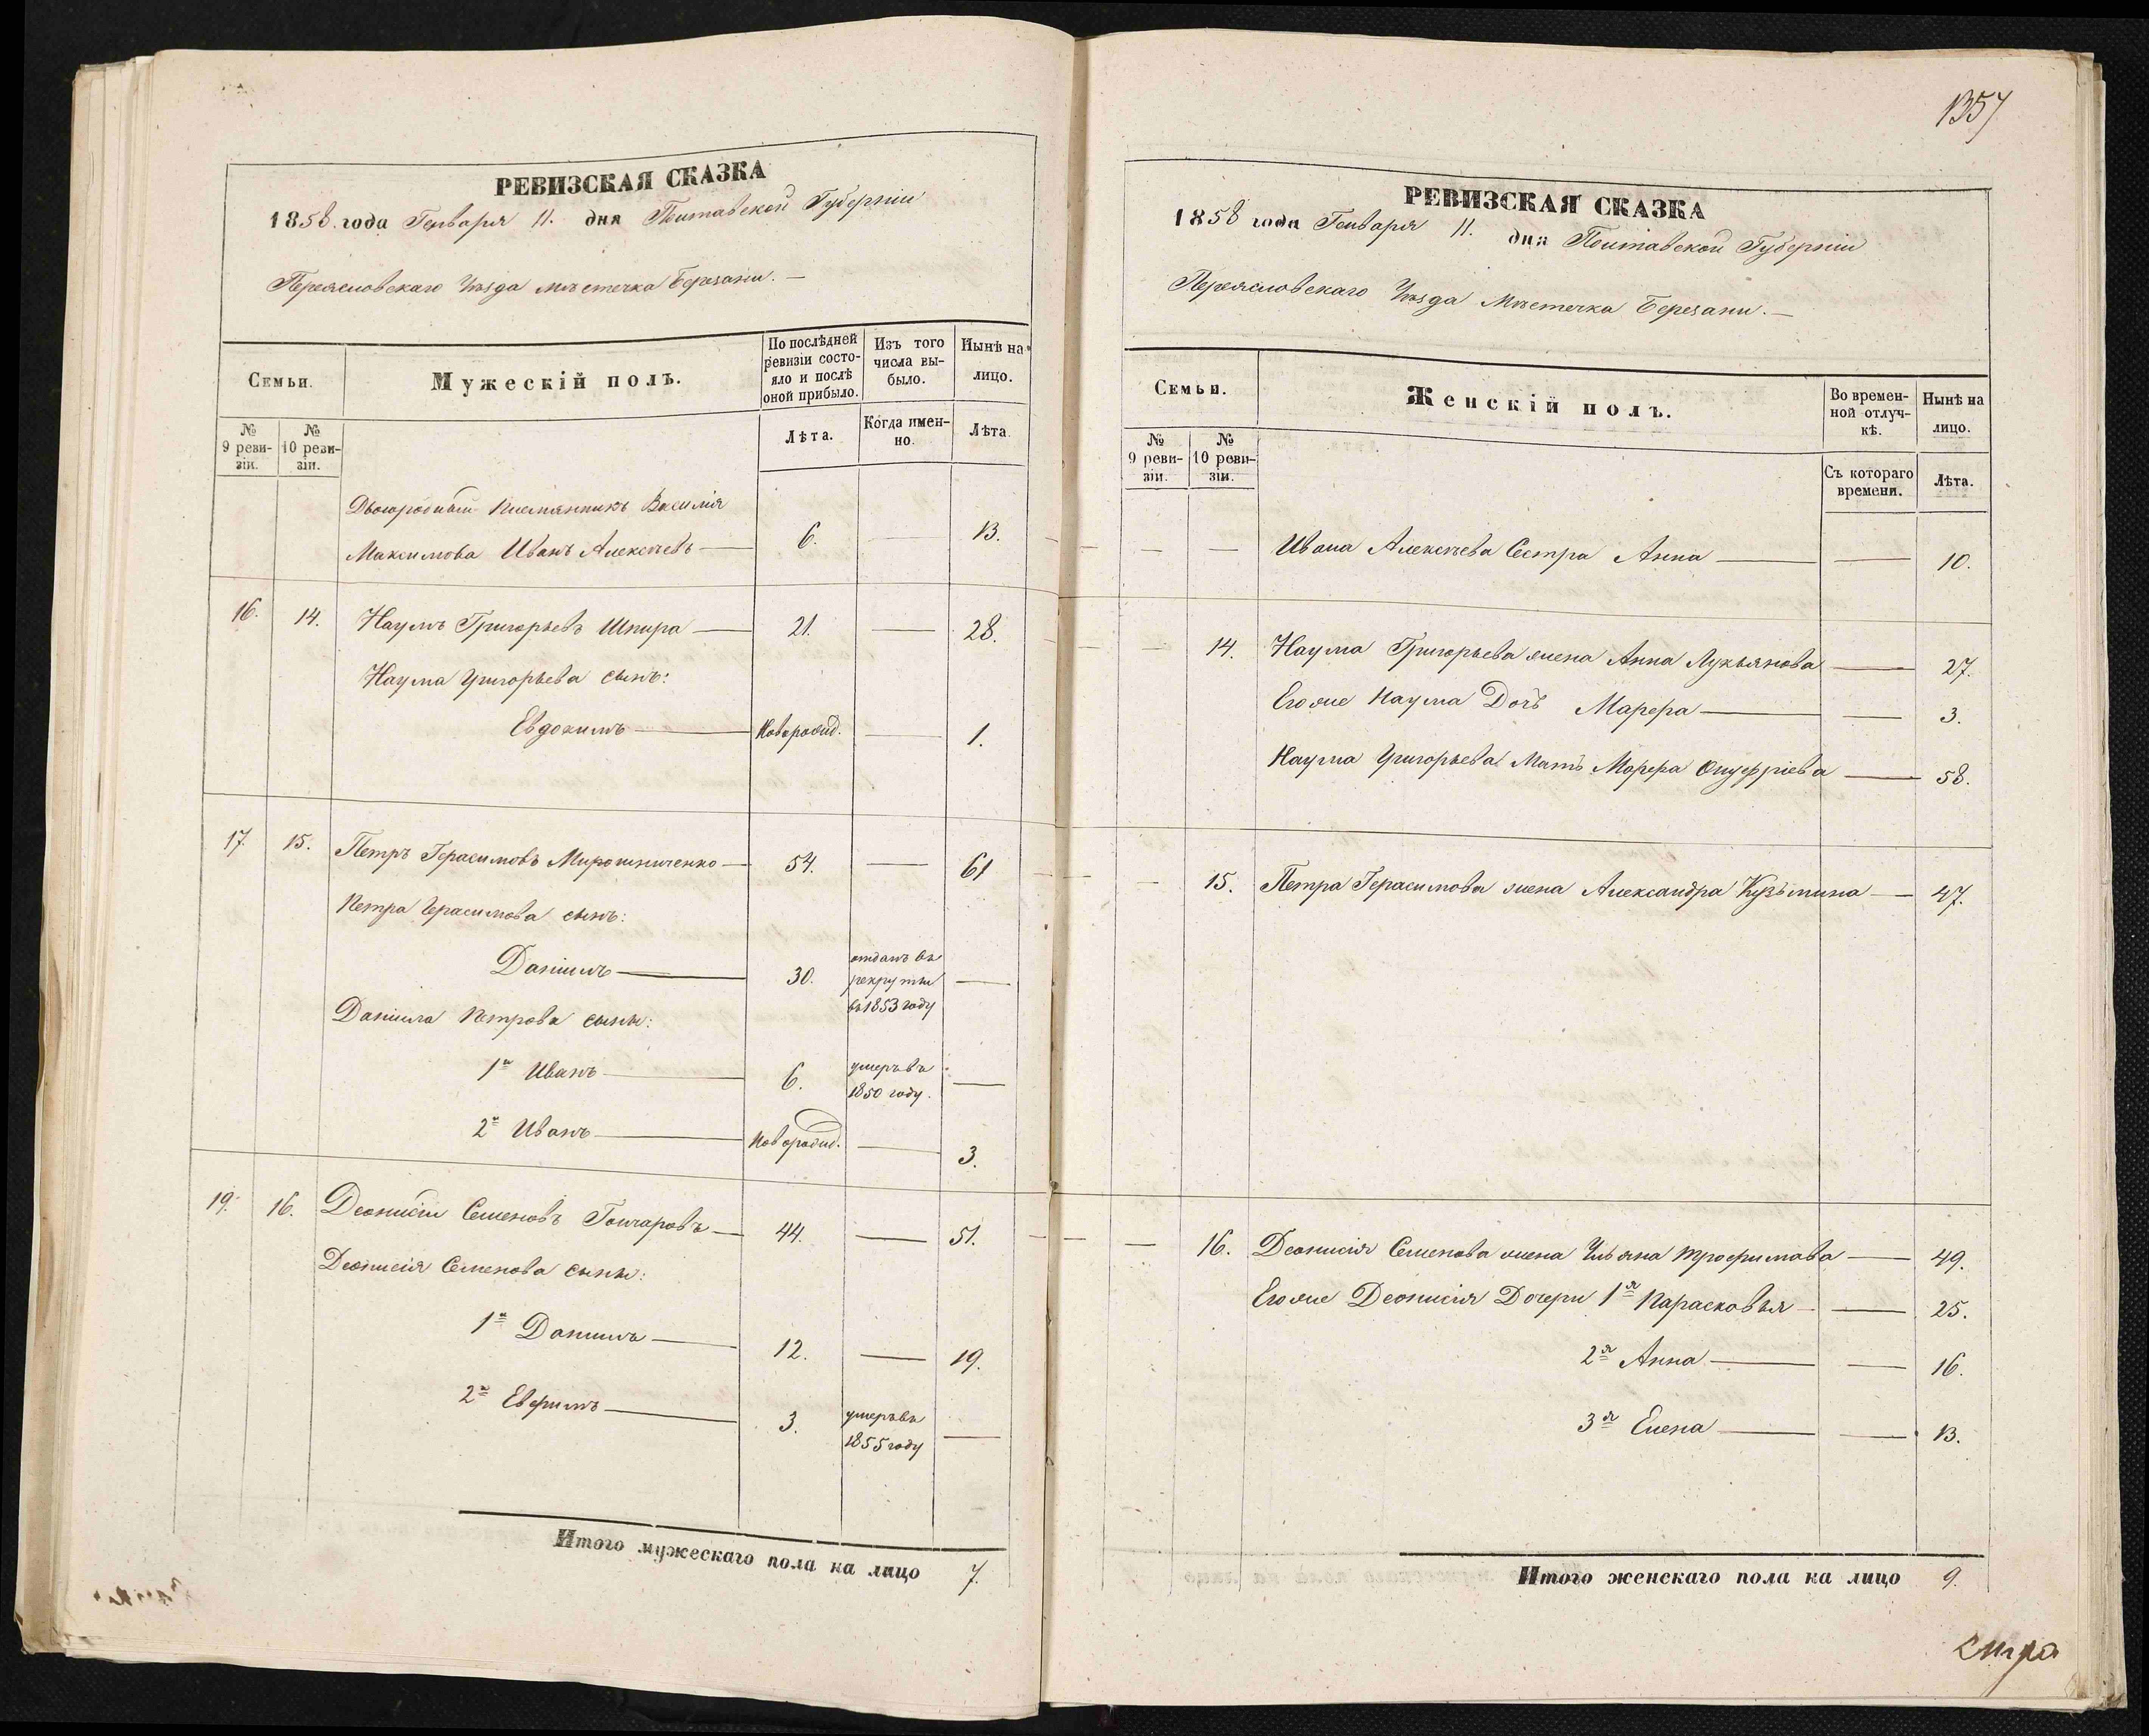 РЕВИЗСКАЯ СКАЗКА
1858 года Генваря 11. дня Полтавской Губерніи
Переясловскаго Уѣзда мѣстечка Березани. —
Семьи.
Мужескій полъ.
По послѣдней ревизіи состояло и послѣ оной прибыло.
Изъ того числа выбыло.
Нынѣ на лицо.
№ 9 ревизіи.
№ 10 ревизіи.
Лѣта.
Когда именно.
Лѣта.
Двоюродный племянникъ Василія
Максимова Иванъ Алексѣевъ — 6. — 13.
16. 14. Наумъ Григорьевъ Шпира — 21. — 28.
Наума Григорьева сынъ:
Евдокимъ — новорожд. — 1.
17. 15. Петръ Герасимовъ Мирошниченко — 54. — 61
Петра Герасимова сынъ:
Даніилъ — 30. отданъ въ рекруты въ 1853 году —
Даніила Петрова сыны:
1й Иванъ — 6. умеръ въ 1850 году. —
2й Иванъ — новорожд. — 3.
19. 16. Деонисій Семеновъ Гончаровъ — 44. — 51.
Деонисія Семенова сыны:
1й Даніилъ — 12. — 19.
2й Евфимъ — 3. умеръ въ 1855 году —
Итого мужескаго пола на лицо 7.
1357
РЕВИЗСКАЯ СКАЗКА
1858 года Генваря 11. дня Полтавской Губерніи
Переясловскаго Уѣзда Мѣстечка Березани. —
Семьи.
Женскій полъ.
Во временной отлучкѣ.
Нынѣ на лицо.
№ 9 ревизіи.
№ 10 ревизіи.
Съ котораго времени.
Лѣта.
— — Ивана Алексѣева Сестра Анна — — 10.
— 14. Наума Григорьева жена Анна Лукьянова — 27.
Его же Наума Дочь Марфа — — 3.
Наума Григорьева Мать Марфа Онуфріева — 58.
— 15. Петра Герасимова жена Александра Кузьмина — 47.
— 16. Деонисія Семенова жена Ульяна Трофимова — 49.
Его же Деонисія Дочери 1я Парасковья — — 25.
2я Анна — — 16.
3я Елена — — 13.
Итого женскаго пола на лицо 9.